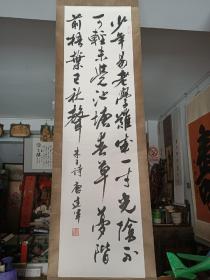 少年易老學難成一寸光陰不
可輕未覺池塘春草夢階
前梧葉已秋聲 朱子詩